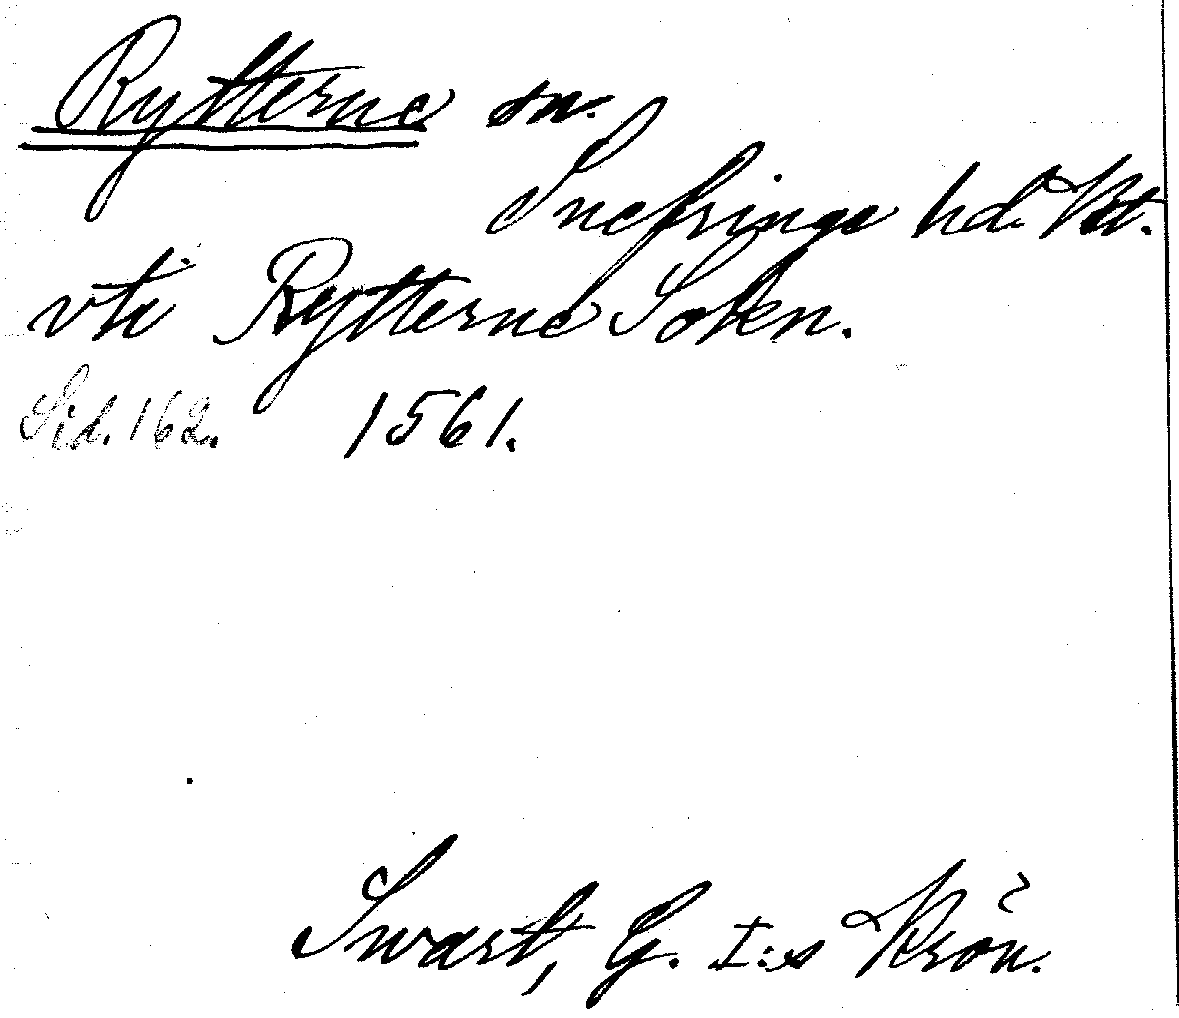 Rytterne sn.
Snefringe hd. Vst.
vti Rytterne Soken.
Sid. 162. 1561.
Swart, G. I:s Krön.